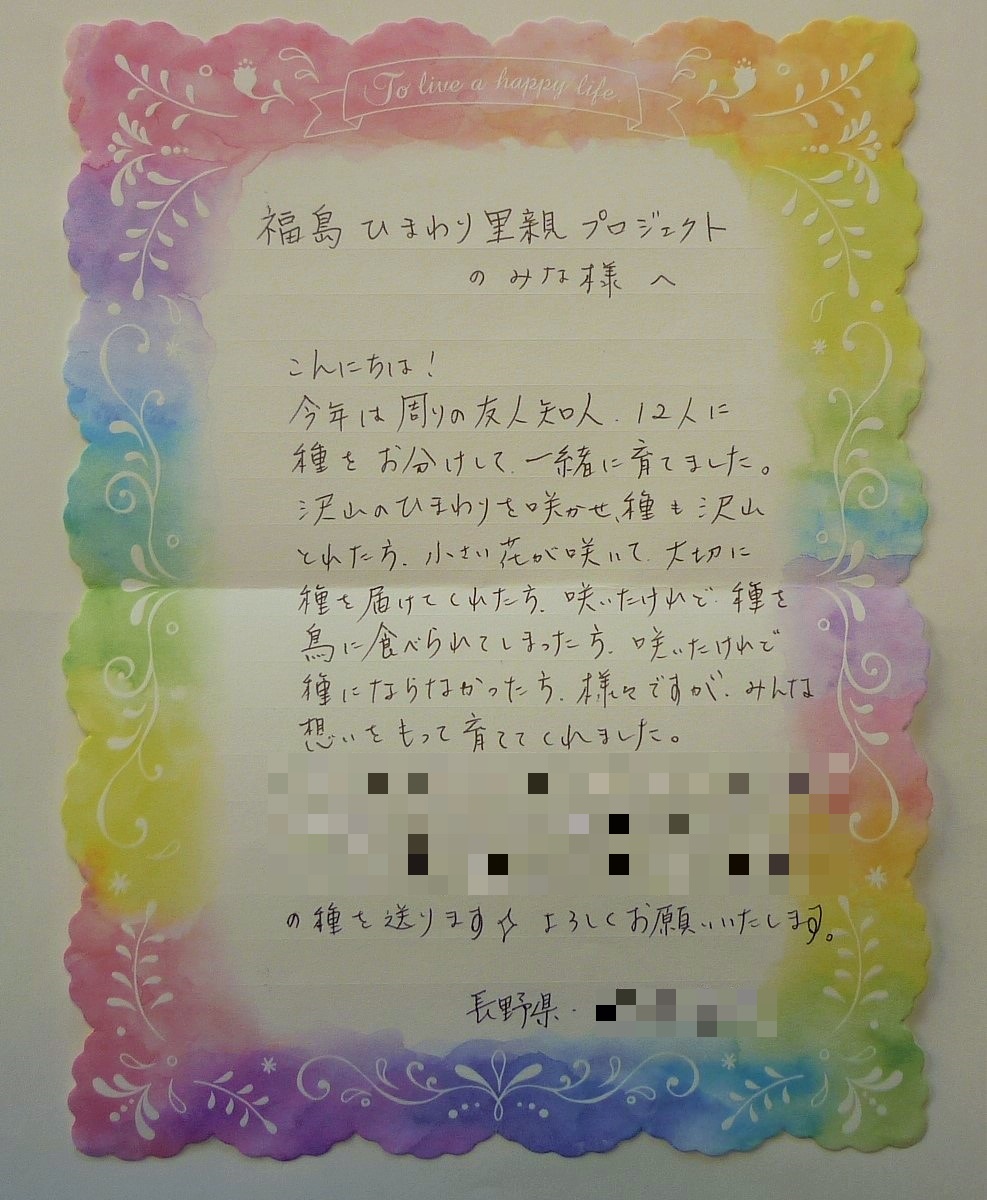 To live a happy life
福島ひまわり里親プロジェクト
のみな様へ
こんにちは!
今年は周りの友人知人、12人に
種をお分けして、一緒に育てました。
沢山のひまわりを咲かせ、種も沢山
とれた方、小さい花が咲いて、大切に
種を届けてくれた方、咲いたけれど、種を
鳥に食べられてしまった方、咲いたけれど
種にならなかった方、様々ですが、みんな
想いをもって育ててくれました。
の種を送ります☆ よろしくお願いいたします。
長野県・